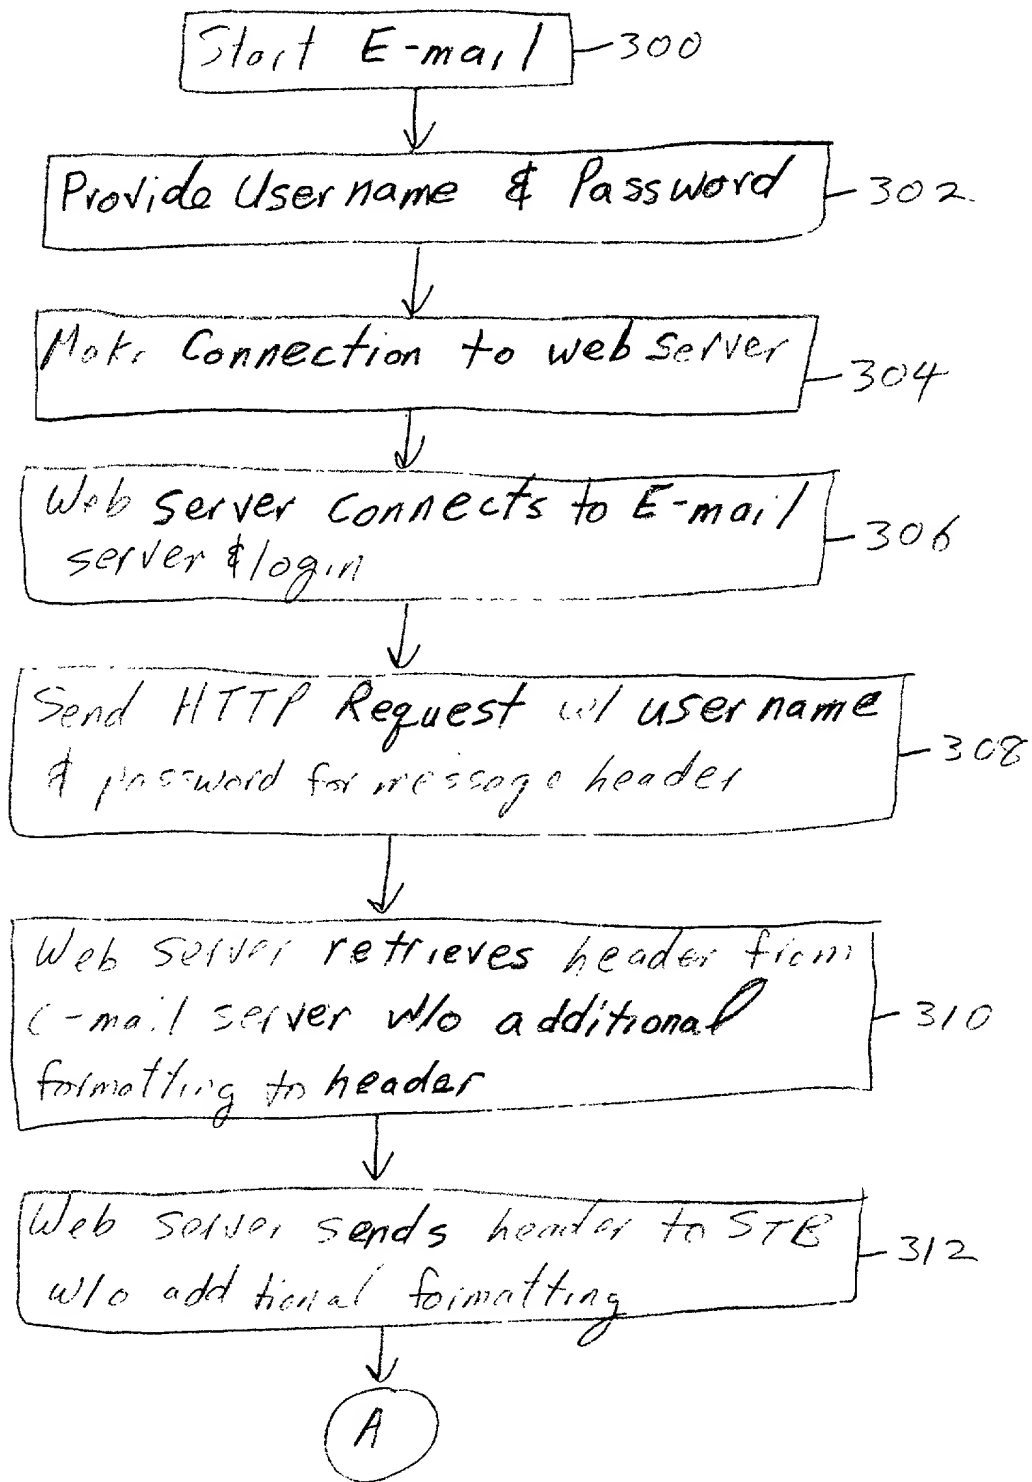 Start E-mail 300
Provide Username & Password 302
Make Connection to web server 304
Web server connects to E-mail
server & login 306
Send HTTP Request w/ username
& password for message header 308
Web server retrieves header from
E-mail server w/o additional 310
formatting to header
Web server sends header to STB 312
w/o additional formatting
A